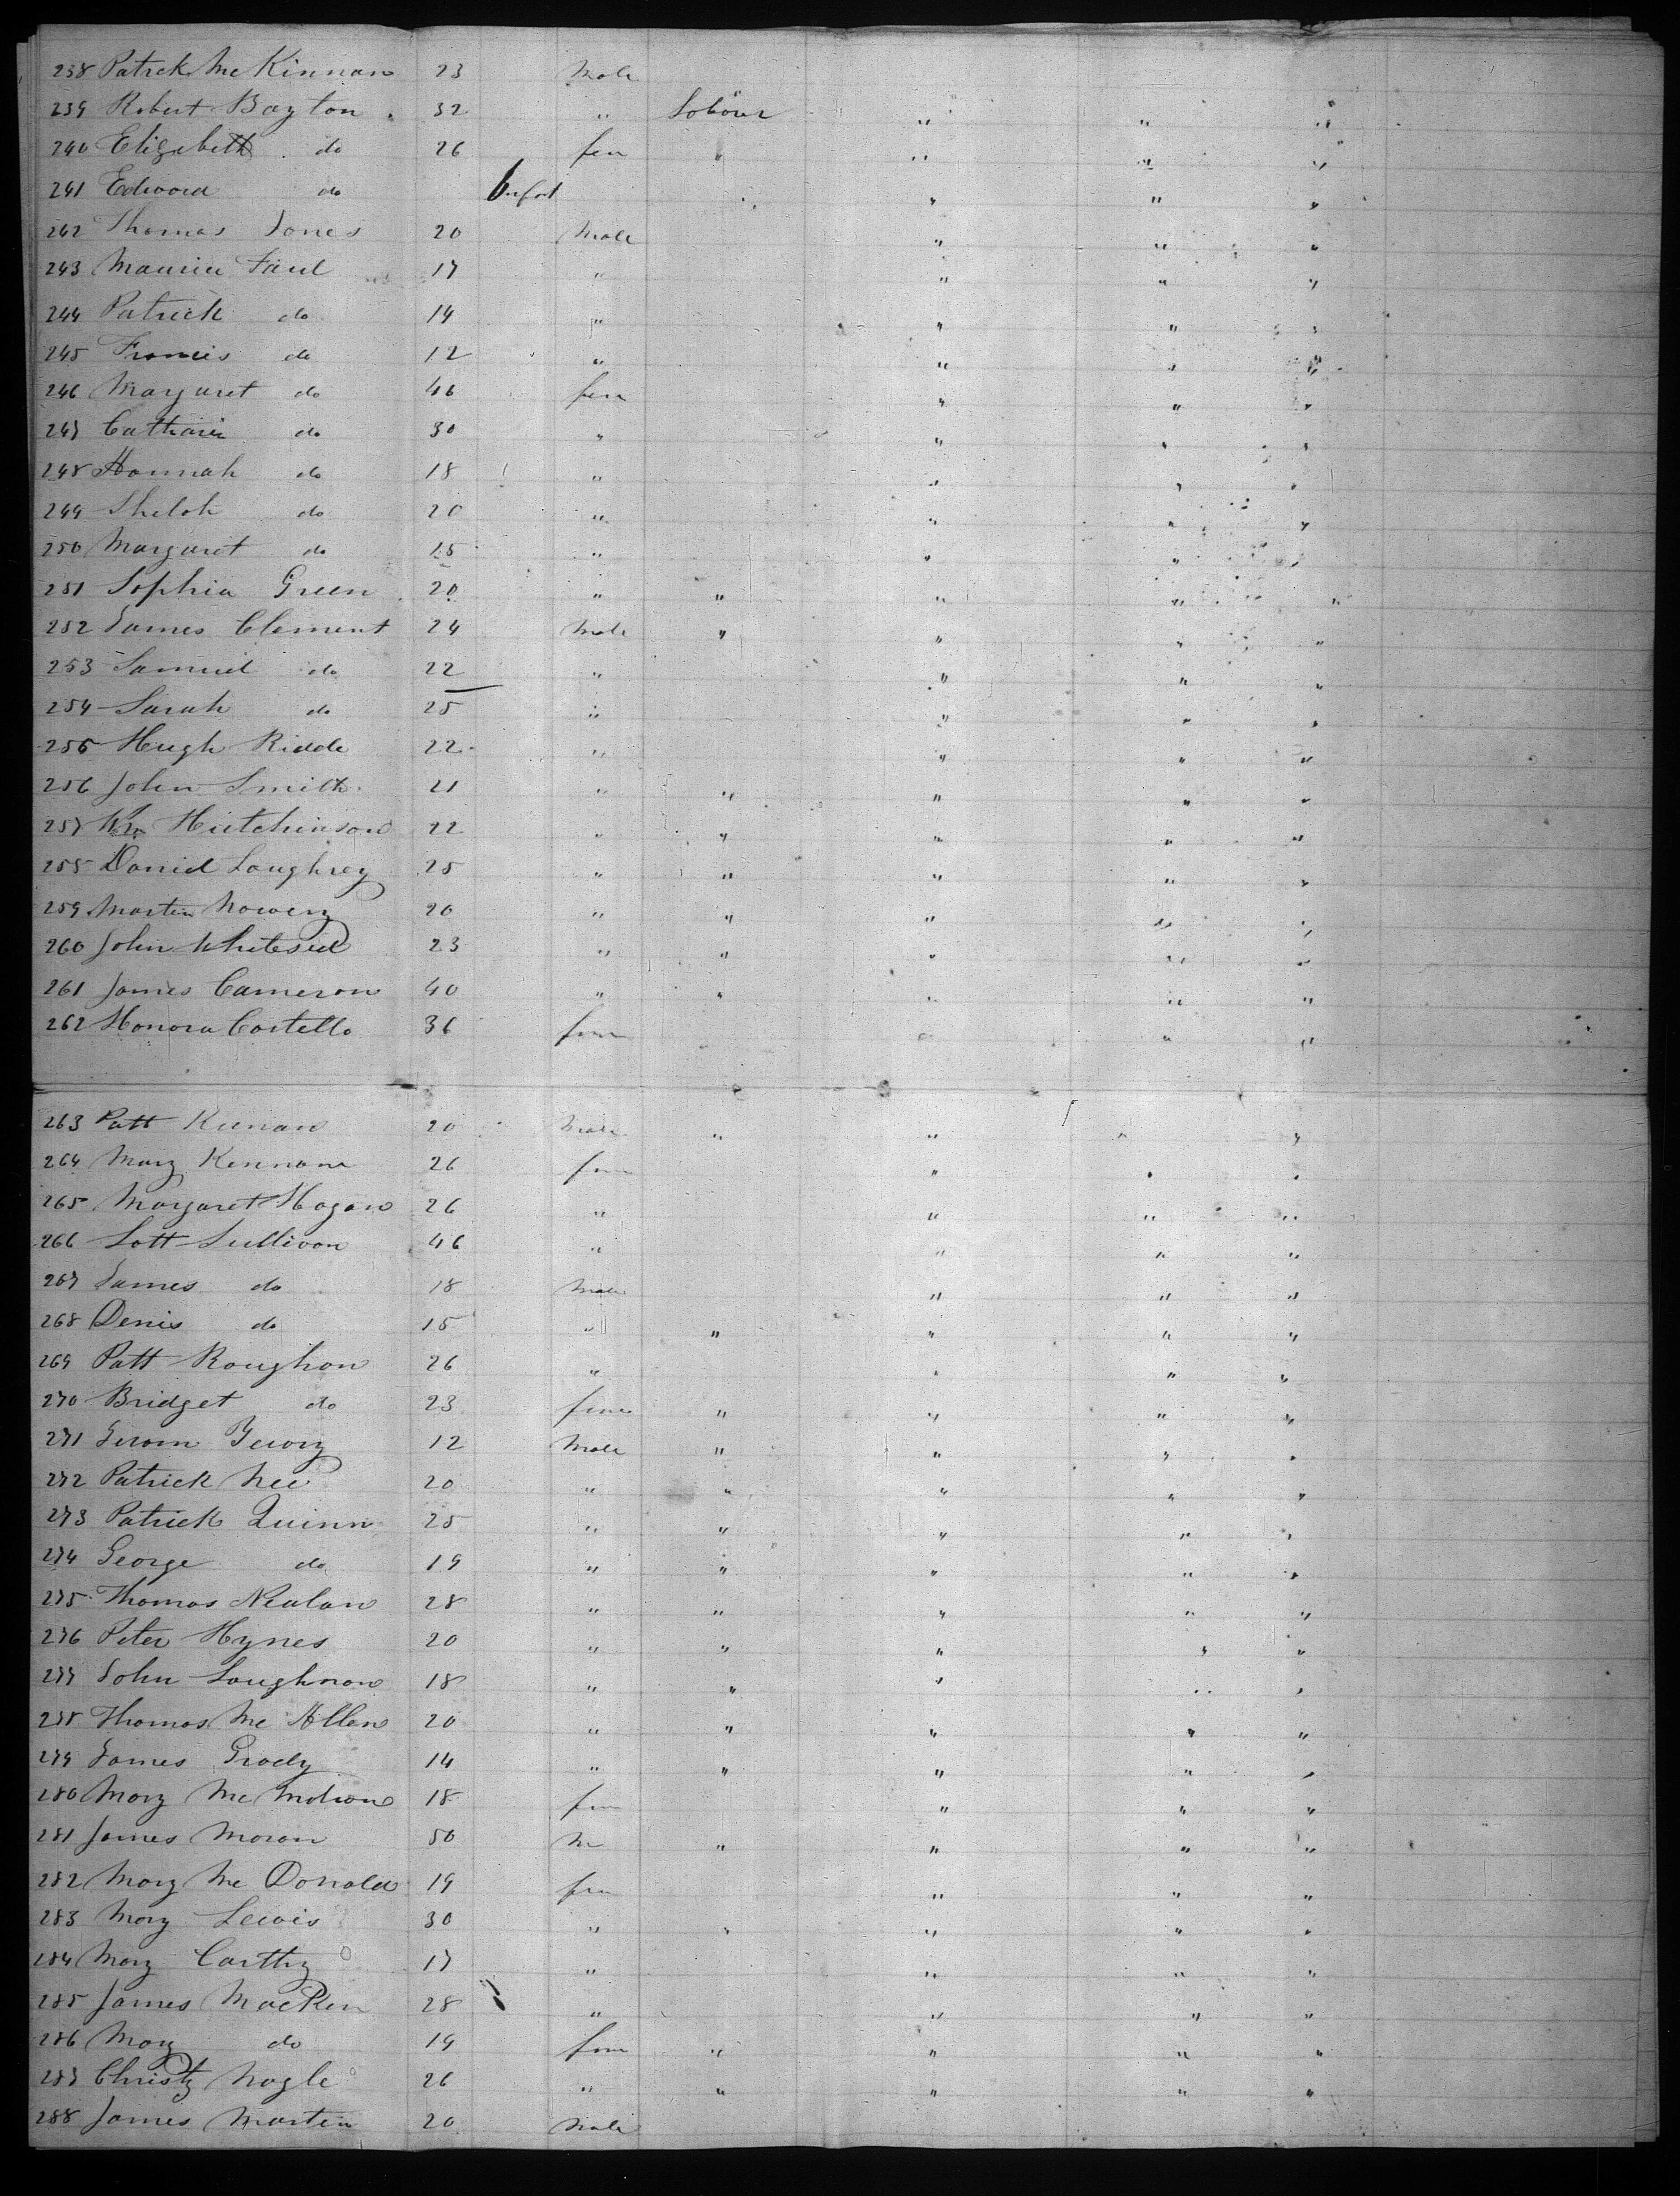 238 Patrck McKinnan 23 Male
239 Robert Bayton 32 " Labour " " "
240 Elizabeth do 26 fem " " " "
241 Edward do Infant " " " "
242 Thomas Jones 20 Male " " "
243 Maurice Faul 17 " " " "
244 Patrick do 14 " " " "
245 Francis do 12 " " " "
246 Margaret do 46 fem " " "
247 Catharin do 30 " " " "
248 Hannah do 18 " " " "
249 Shelah do 20 " " " "
250 Margaret do 15 " " " "
251 Sophia Green 20 " " " " "
252 James Clement 24 Male " " " "
253 Samuel do 22 " " " "
254 Sarah do 25 " " " "
255 Hugh Riddle 22 " " " "
256 John Smith 21 " " " " "
257 Wm Hutchinson 22 " " " " "
258 Daniel Loughrey 25 " " " " "
259 Martin Nowery 20 " " " " "
260 John Whitesid 23 " " " " "
261 James Cameron 40 " " " " "
262 Honora Costello 36 fem " " "
263 Patt Keenan 20 Male " " " "
264 Mary Kennane 26 fem " " "
265 Margaret Hogan 26 " " " "
266 Lott Sullivan 46 " " " "
267 James do 18 Male " " "
268 Denis do 15 " " " " "
269 Patt Roughan 26 " " " "
270 Bridget do 23 fem " " " "
271 12 Male " " " "
272 Patrick Nee 20 " " " " "
273 Patrick Quinn 25 " " " " "
274 George do 19 " " " " "
275 Thomas Nealan 28 " " " " "
276 Peter Hynes 20 " " " " "
277 John Loughnan 18 " " " " "
278 Thomas Mc Allen 20 " " " " "
279 James Grady 14 " " " " "
280 Mary Mc Mahon 18 fem " " "
281 James Moran 50 M " " " "
282 Mary Mc Donald 19 fem " " "
283 Mary Lewis 30 " " " " "
284 Mary Carthy 17 " " " "
285 James MacKen 28 " " " "
286 Mary do 19 fem " " " "
287 Christy Nagle 26 " " " " "
288 James Martin 20 Male